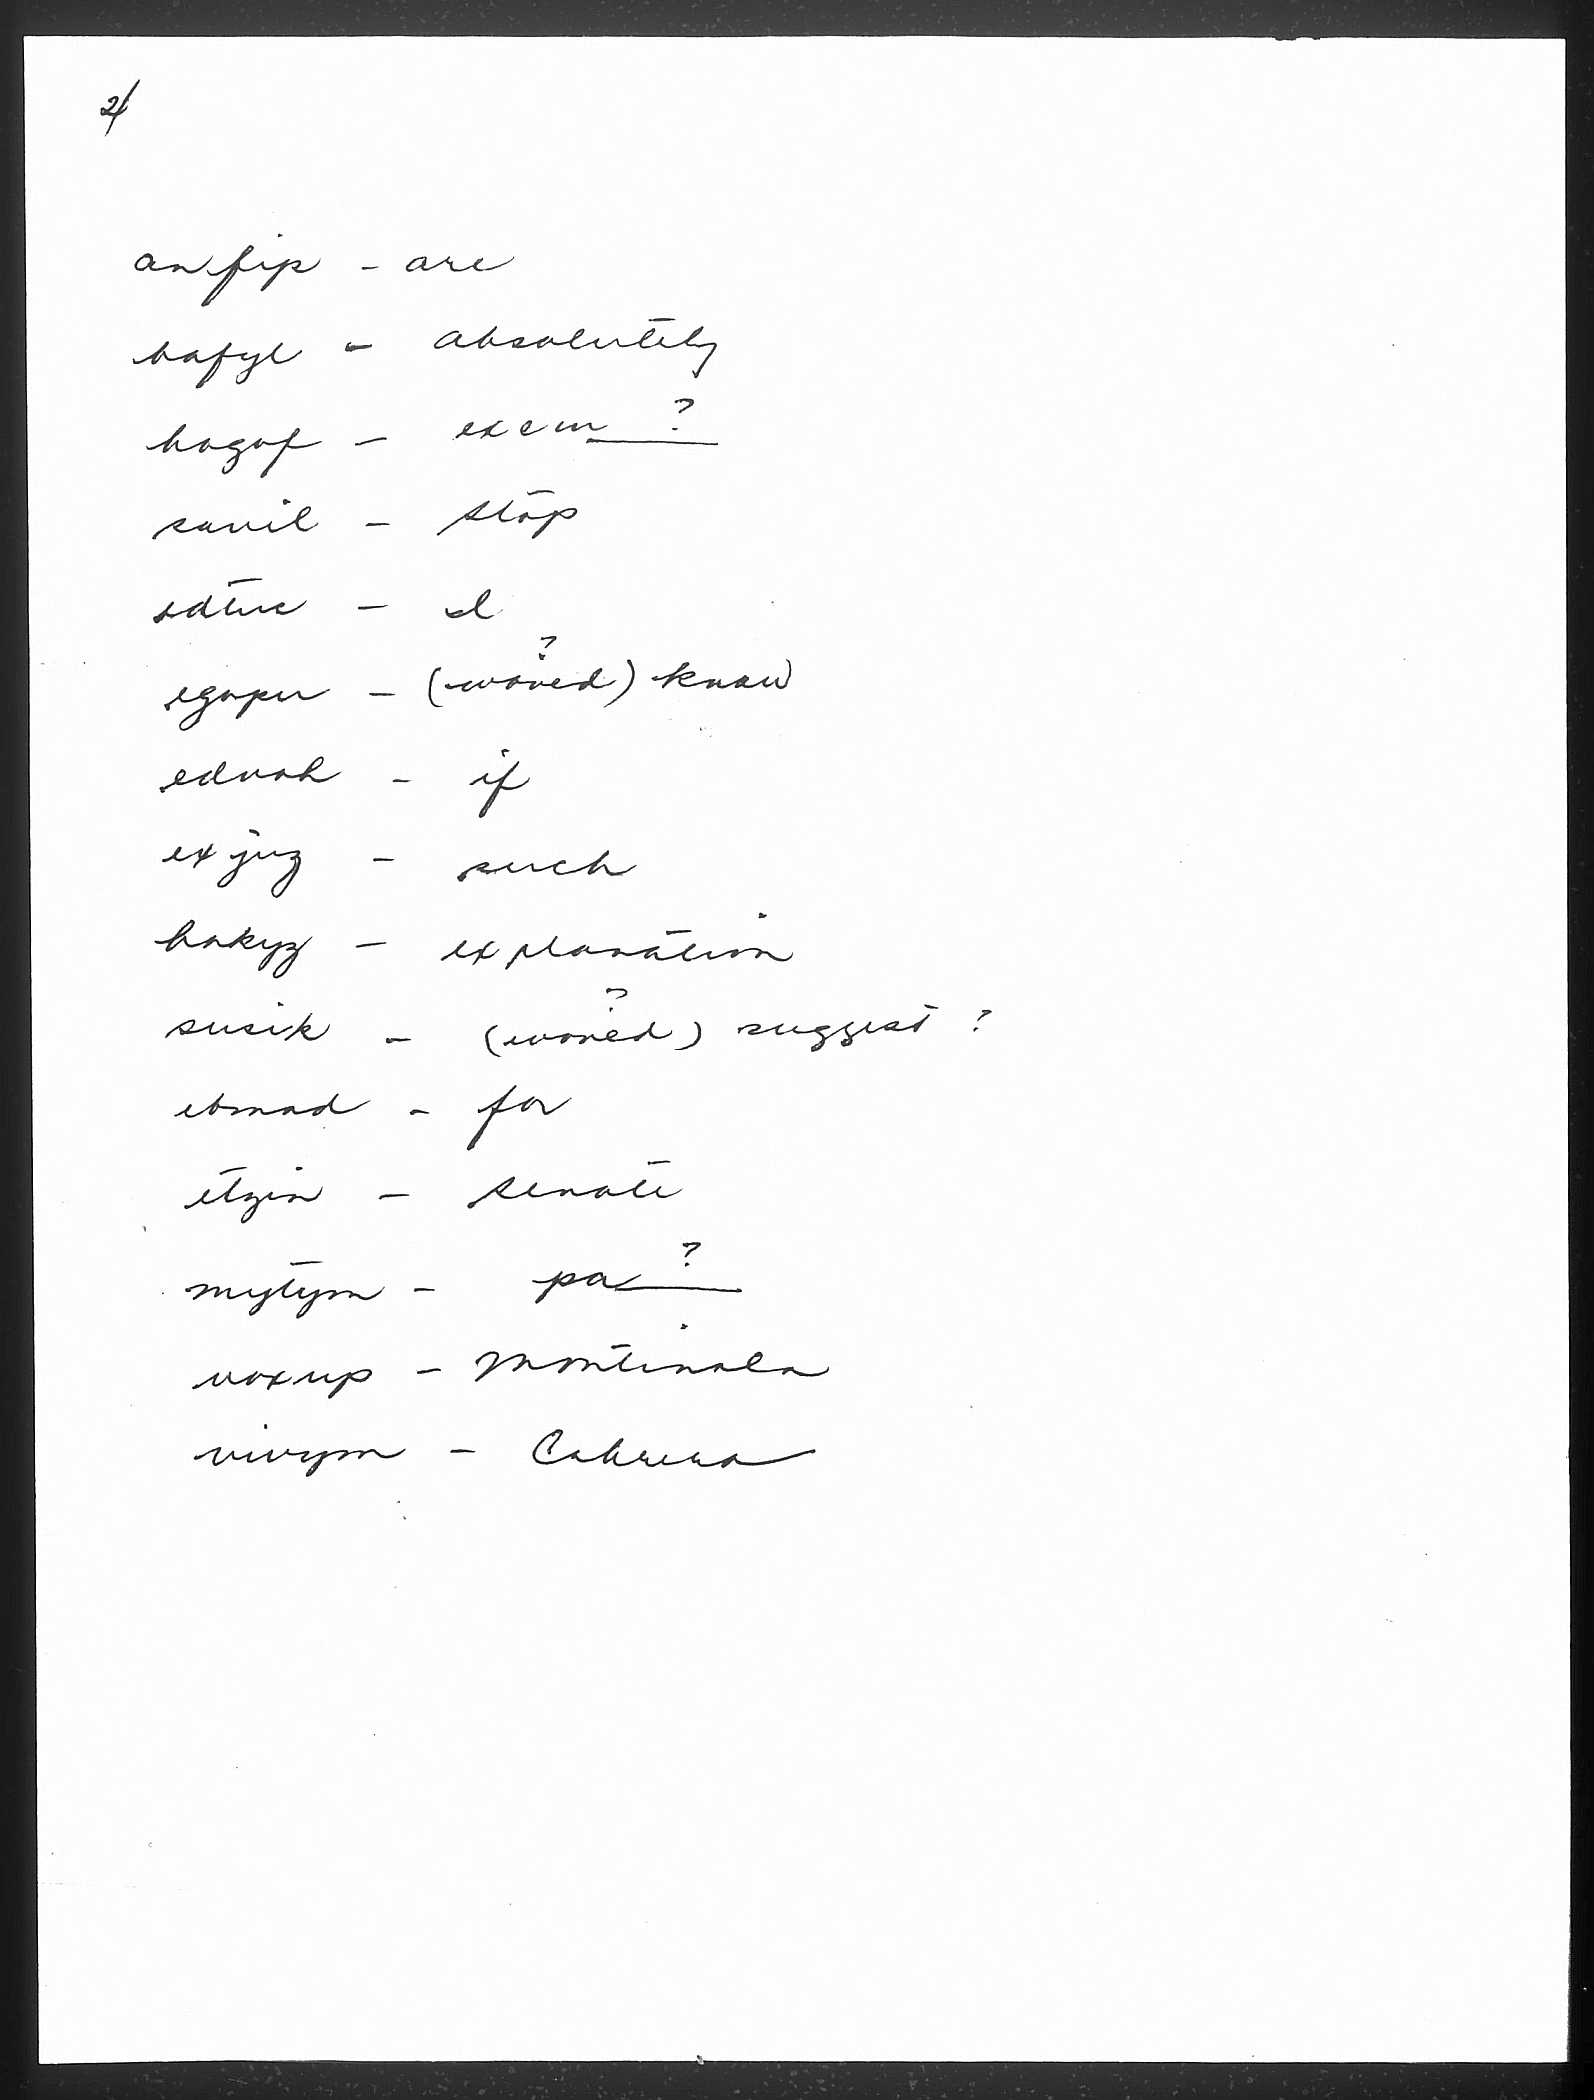 2/
anfip - are
bafyl - absolutely
hogof - exem ?
savil - stop
sdtus - I
egopu - (woved)? know
edvah - if
exjuz - such
bakyz - explanation
susik - (woved)? suggest ?
ebmad - for
etzin - senate
mytym - pa ?
voxup - Montinola
vivym - Cabrera